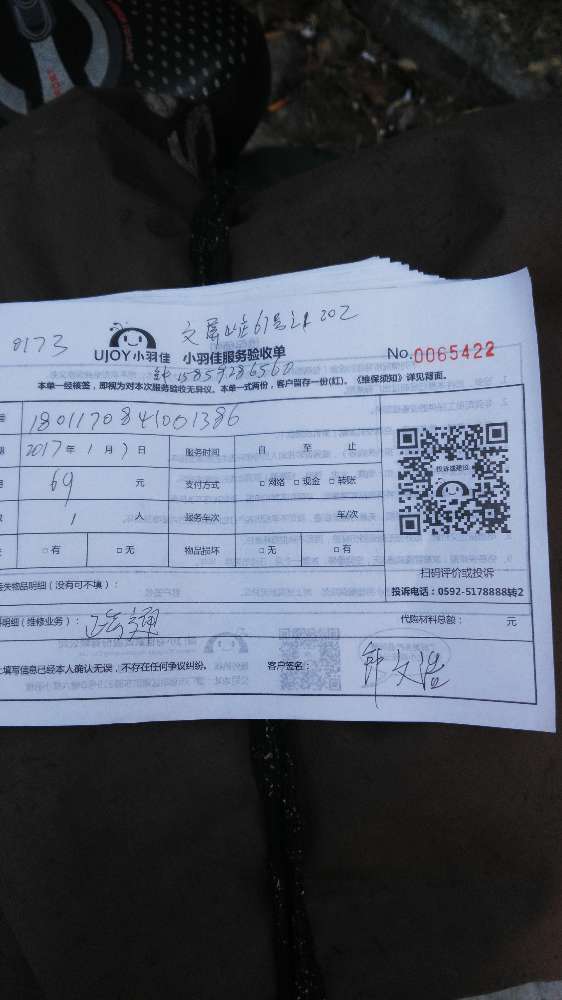 0173
文屏山庄61号之1 202
UJOY小羽佳 小羽佳服务验收单
No.0065422
钟15859286560
本单一经核签，即视为对本次服务验收无异议。本单一式两份，客户留存一份(红)。《维保须知》详见背面。
1801170841001386
2017年1月7日 服务时间 自 至 止
69 元 支付方式 □网络 □现金 □转账
1 人 服务车次 车/次
□有 □无 物品损坏 □无 □有
投诉或建议
扫码评价或投诉
投诉电话：0592-5178888转2
失物品明细（没有可不填）：
明细（维修业务）： 代购材料总额： 元
填写信息已经本人确认无误，不存在任何争议纠纷。 客户签名：